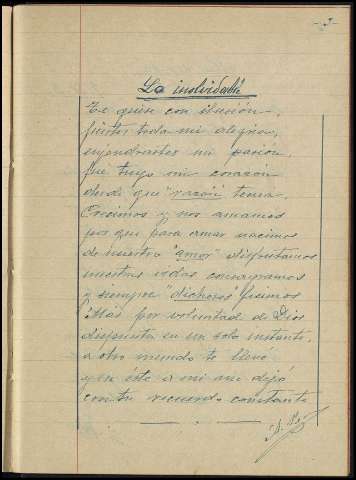 - 3 -
La inolvidable
Te quise con ilusión,
fuistes toda mi alegria,
enjendrastes mi pasion,
fué tuyo mi corazón
desde que "razón" tenia.
Crecimos y nos amamos
por que para amar nacimos
de nuestro "amor" disfrutamos
nuestras vidas consagramos
y siempre "dichosos" fuimos
Mas por voluntad de Dios
dispuesta en un solo instante,
a otro mundo te llevó
y en éste a mi me dejó
con tu recuerdo constante